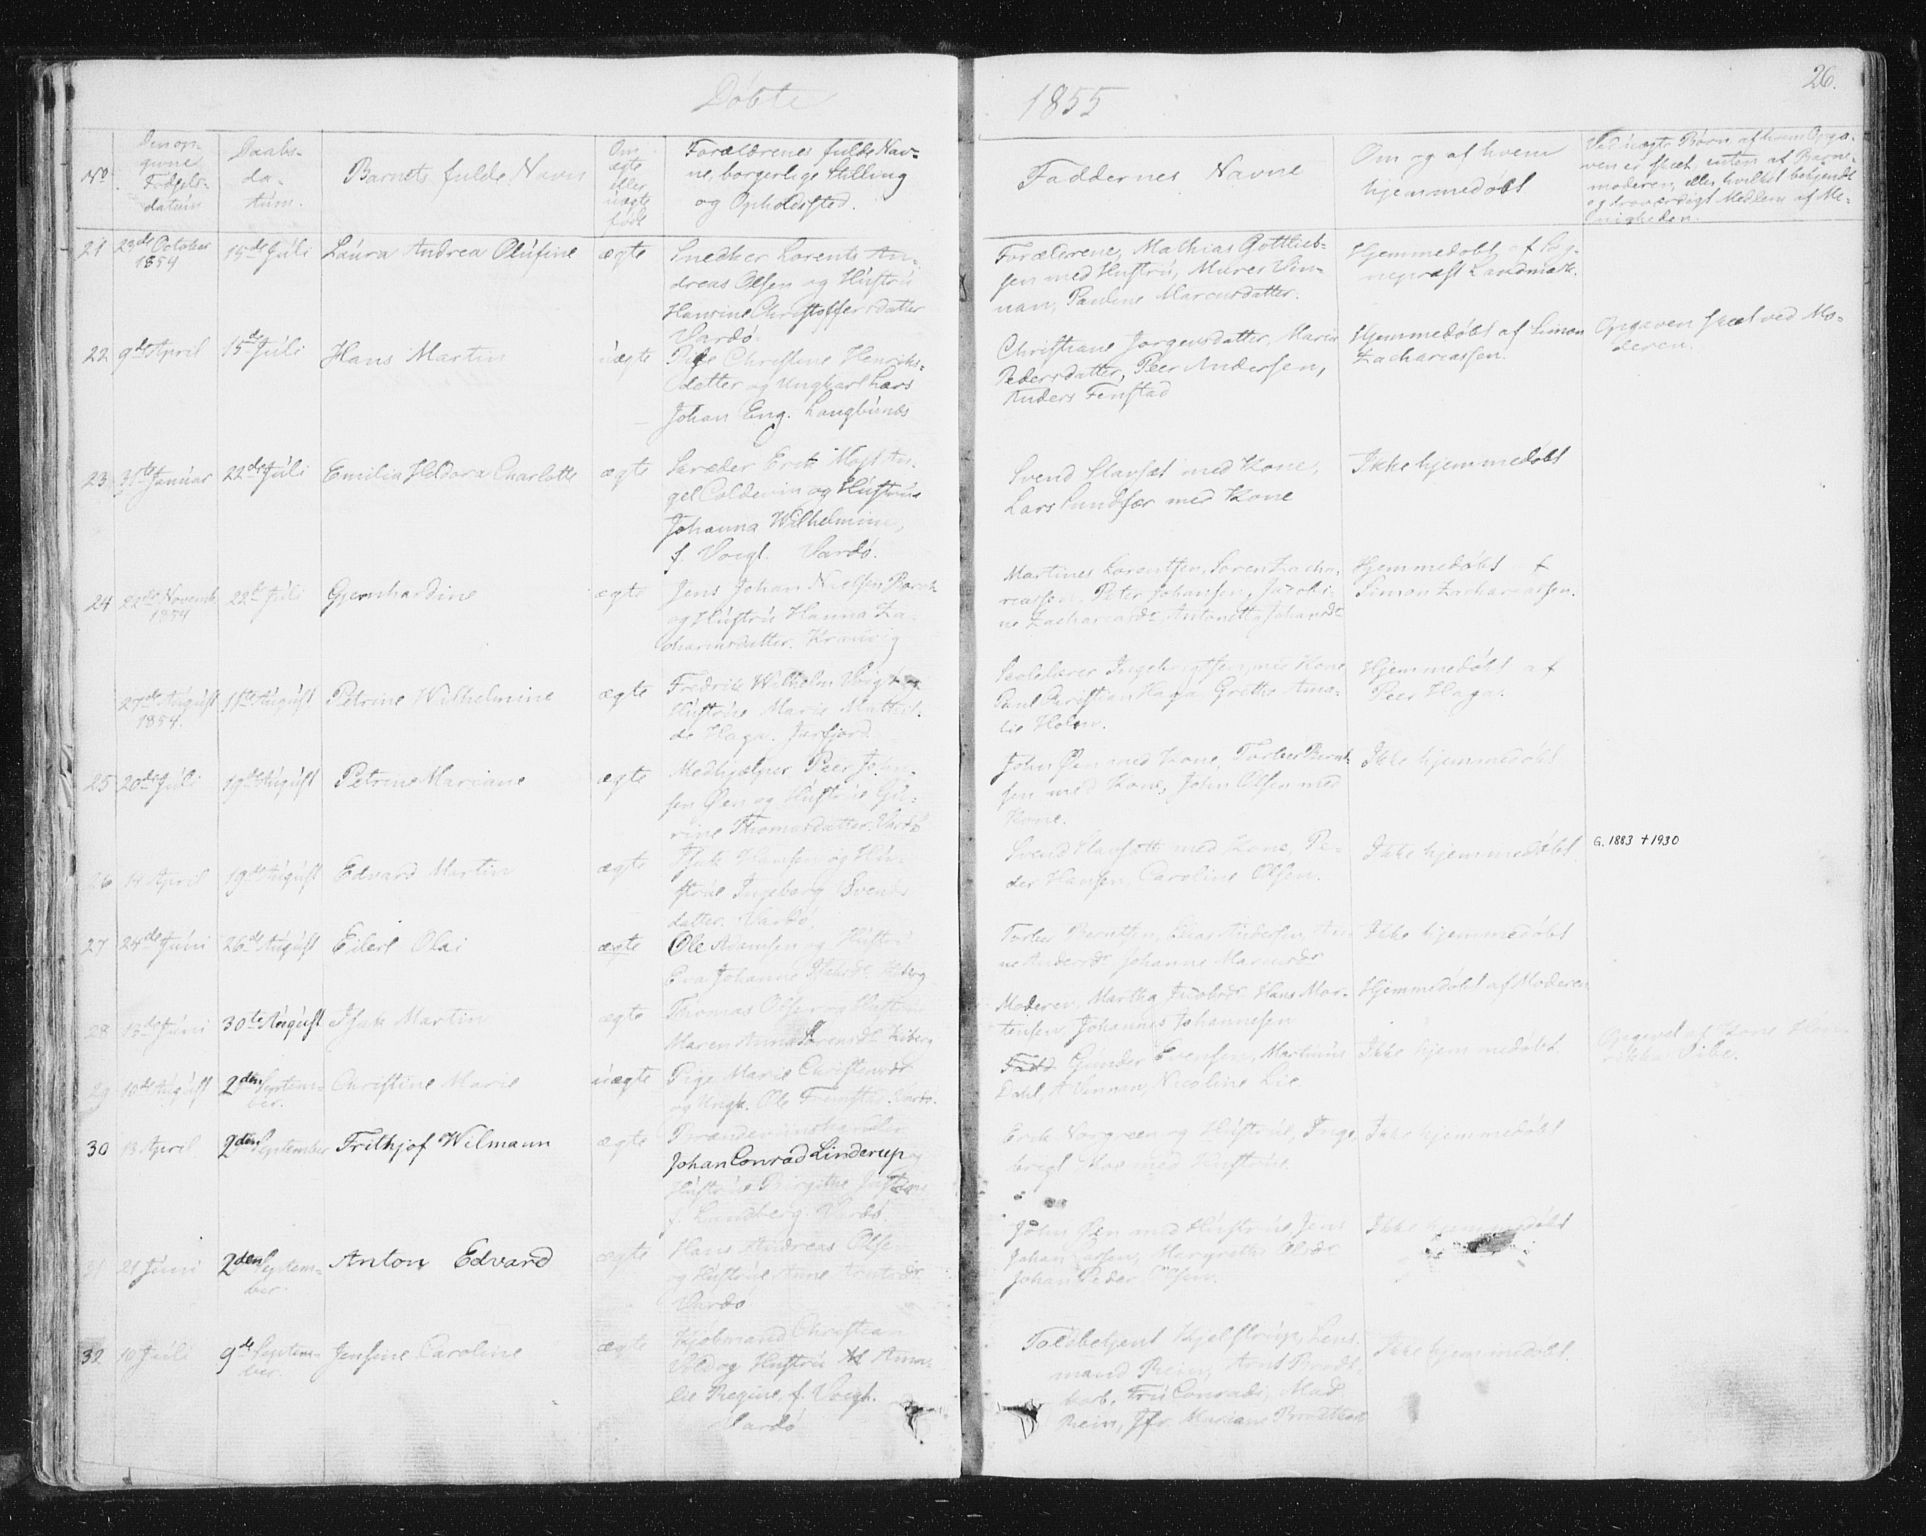 Döbte
1855
26.
No
Den op-
givne
Födsels-
datum
Daabs-
da-
tum.
Barnets fulde Navn
Om
ægte
eller
uægte
födt
Forældrenes fulde Nav-
ne, borgerlige Stilling
og Opholdssted.
Faddernes Navne
Om og af hvem
hjemmedöbt
Ved uægte Börn af hvem Opga-
ven er skeet, enten af Barne-
moderen, eller hvilket bekjendt
og troværdigt Medlem af Me-
nigheden.
21 23de October 1854 15de Juli Laura Andrea Olufine ægte
Snedker Lorents An-
dreas Olsen og Hustru
Hansine Christoffersdatter
Vardö.
Forældrene, Mathias Gottlieb-
sen med Hustru, Murer Vin-
nan, Pauline Marcusdatter.
Hjemmedöbt af Sog-
nepræst Landmark.
22 9de April 15de Juli Hans Martin uægte
Pige Christine Henriks-
datter og Ungkarl Lars
Johan Eng. Langbunæs
Christiane Jörgensdatter, Maria
Pedersdatter, Peer Andersen,
Anders Finstad
Hjemmedöbt af Simon
Zachariassen.
Opgaven skeet ved Mo-
deren.
23 31te Januar 22de Juli Emilia Heldora Charlotte ægte
Skræder Erik Majst An-
gel Coldevin og Hustrue
Johanna Wilhelmine,
f. Voigt. Vardö.
Svend Slavsæt med Kone,
Lars Sundfær med Kone
Ikke hjemmedöbt
24 22de Novemb 1854 22de Juli Gjernhardine ægte
Jens Johan Nielsen Barck
og Hustrú Hanna Za-
chariasdatter. Kramvig
Martines Lorentsen, Sören Zacha-
riassen, Peter Johansen, Jacobi-
ne Zachariasdr, Antonette Johansdr
Hjemmedöbt af
Simon Zachariassen.
27de August 1854. 11te August Petrine Wilhelmine ægte
Fredrik Wilhelm Voigt og
Hustrue Marie Mathil-
de Haga. Jarfjord
Skolelærer Ingebrigtsen med Kone
Paul Christian Haga Grethe Ama-
lie Holm.
Hjemmedöbt af
Peer Haga.
25 20de Juli 19de August Petrine Mariane ægte
Medhjælper Peer John-
sen Öen og Hustrue Gu-
rine Thomasdatter. Vardö
John Öen med Kone, Torber Bernt-
sen med Kone, John Olsen med
Kone.
Ikke hjemmedöbt
26 14 April 19de August Edvard Martin ægte
Isak Hansen og Hu-
strue Ingeborg Svends-
datter. Vardö
Svend Slavsæt med Kone, Pe-
der Hansen, Caroline Olsen.
Ikke hjemmedöbt
G. 1883 +1930
27 24de Juni 26de August Eilert Olai ægte
Ole Adamsen og Hustru
Eva Johanne
Torber Berntsen, Andersen, An-
ne Andersdr Johanne Marcusdr
Ikke hjemmedöbt
28 13de Juni 30te August Isak Martin ægte
Thomas Olsen og Hustrue
Maren Anna Sörensdr Kiberg
Moderen, Martha Jacobsdr Hans Mor-
tensen, Johannes Johannesen
Hjemmedöbt af Moderen
29 10de August 2den Septem-
ber. Christine Marie uægte
Pige Marie Christensdr
og Ungk. Ole Fremstad. Vardö.
Gunder Evensen, Martinus
Dahl, A Vinnan, Nicoline Lie
Ikke hjemmedöbt
Opgivet af Kone Hen-
rikka Eibe.
30 13 April 2den September Frithjof Wilmann ægte
Brændeviinshandler
Johan Conrad Linderup og
Hustrue Birgithe Justine
f. Lundberg. Vardö.
Erik Norgreen og Hustrue, Inge-
brigt Moe med Hustrue.
Ikke hjemmedöbt
31 21 Juni 2den Septem-
ber. Anton Edvard ægte
Hans Andreas Olse
og Hustrue Anne Arntsdr
Vardö
John Öen med Hustrue Jens
Johan Larsen, Margrethe Olsdr
Johan Peder Olsen.
Ikke hjemmedöbt
32 10 Juli 9de Septem-
ber. Jensine Caroline ægte
Kjöbmand Christian
og Hustru Ama-
lie Regine, f. Voigt.
Vardö
Toldbetjent Kjelstrup, Lens-
mand Rein, Arnt Brodt-
korb, Fru Conradi, Mad
Rein, Jfr. Mariane Brodtkorb
Ikke hjemmedöbt.